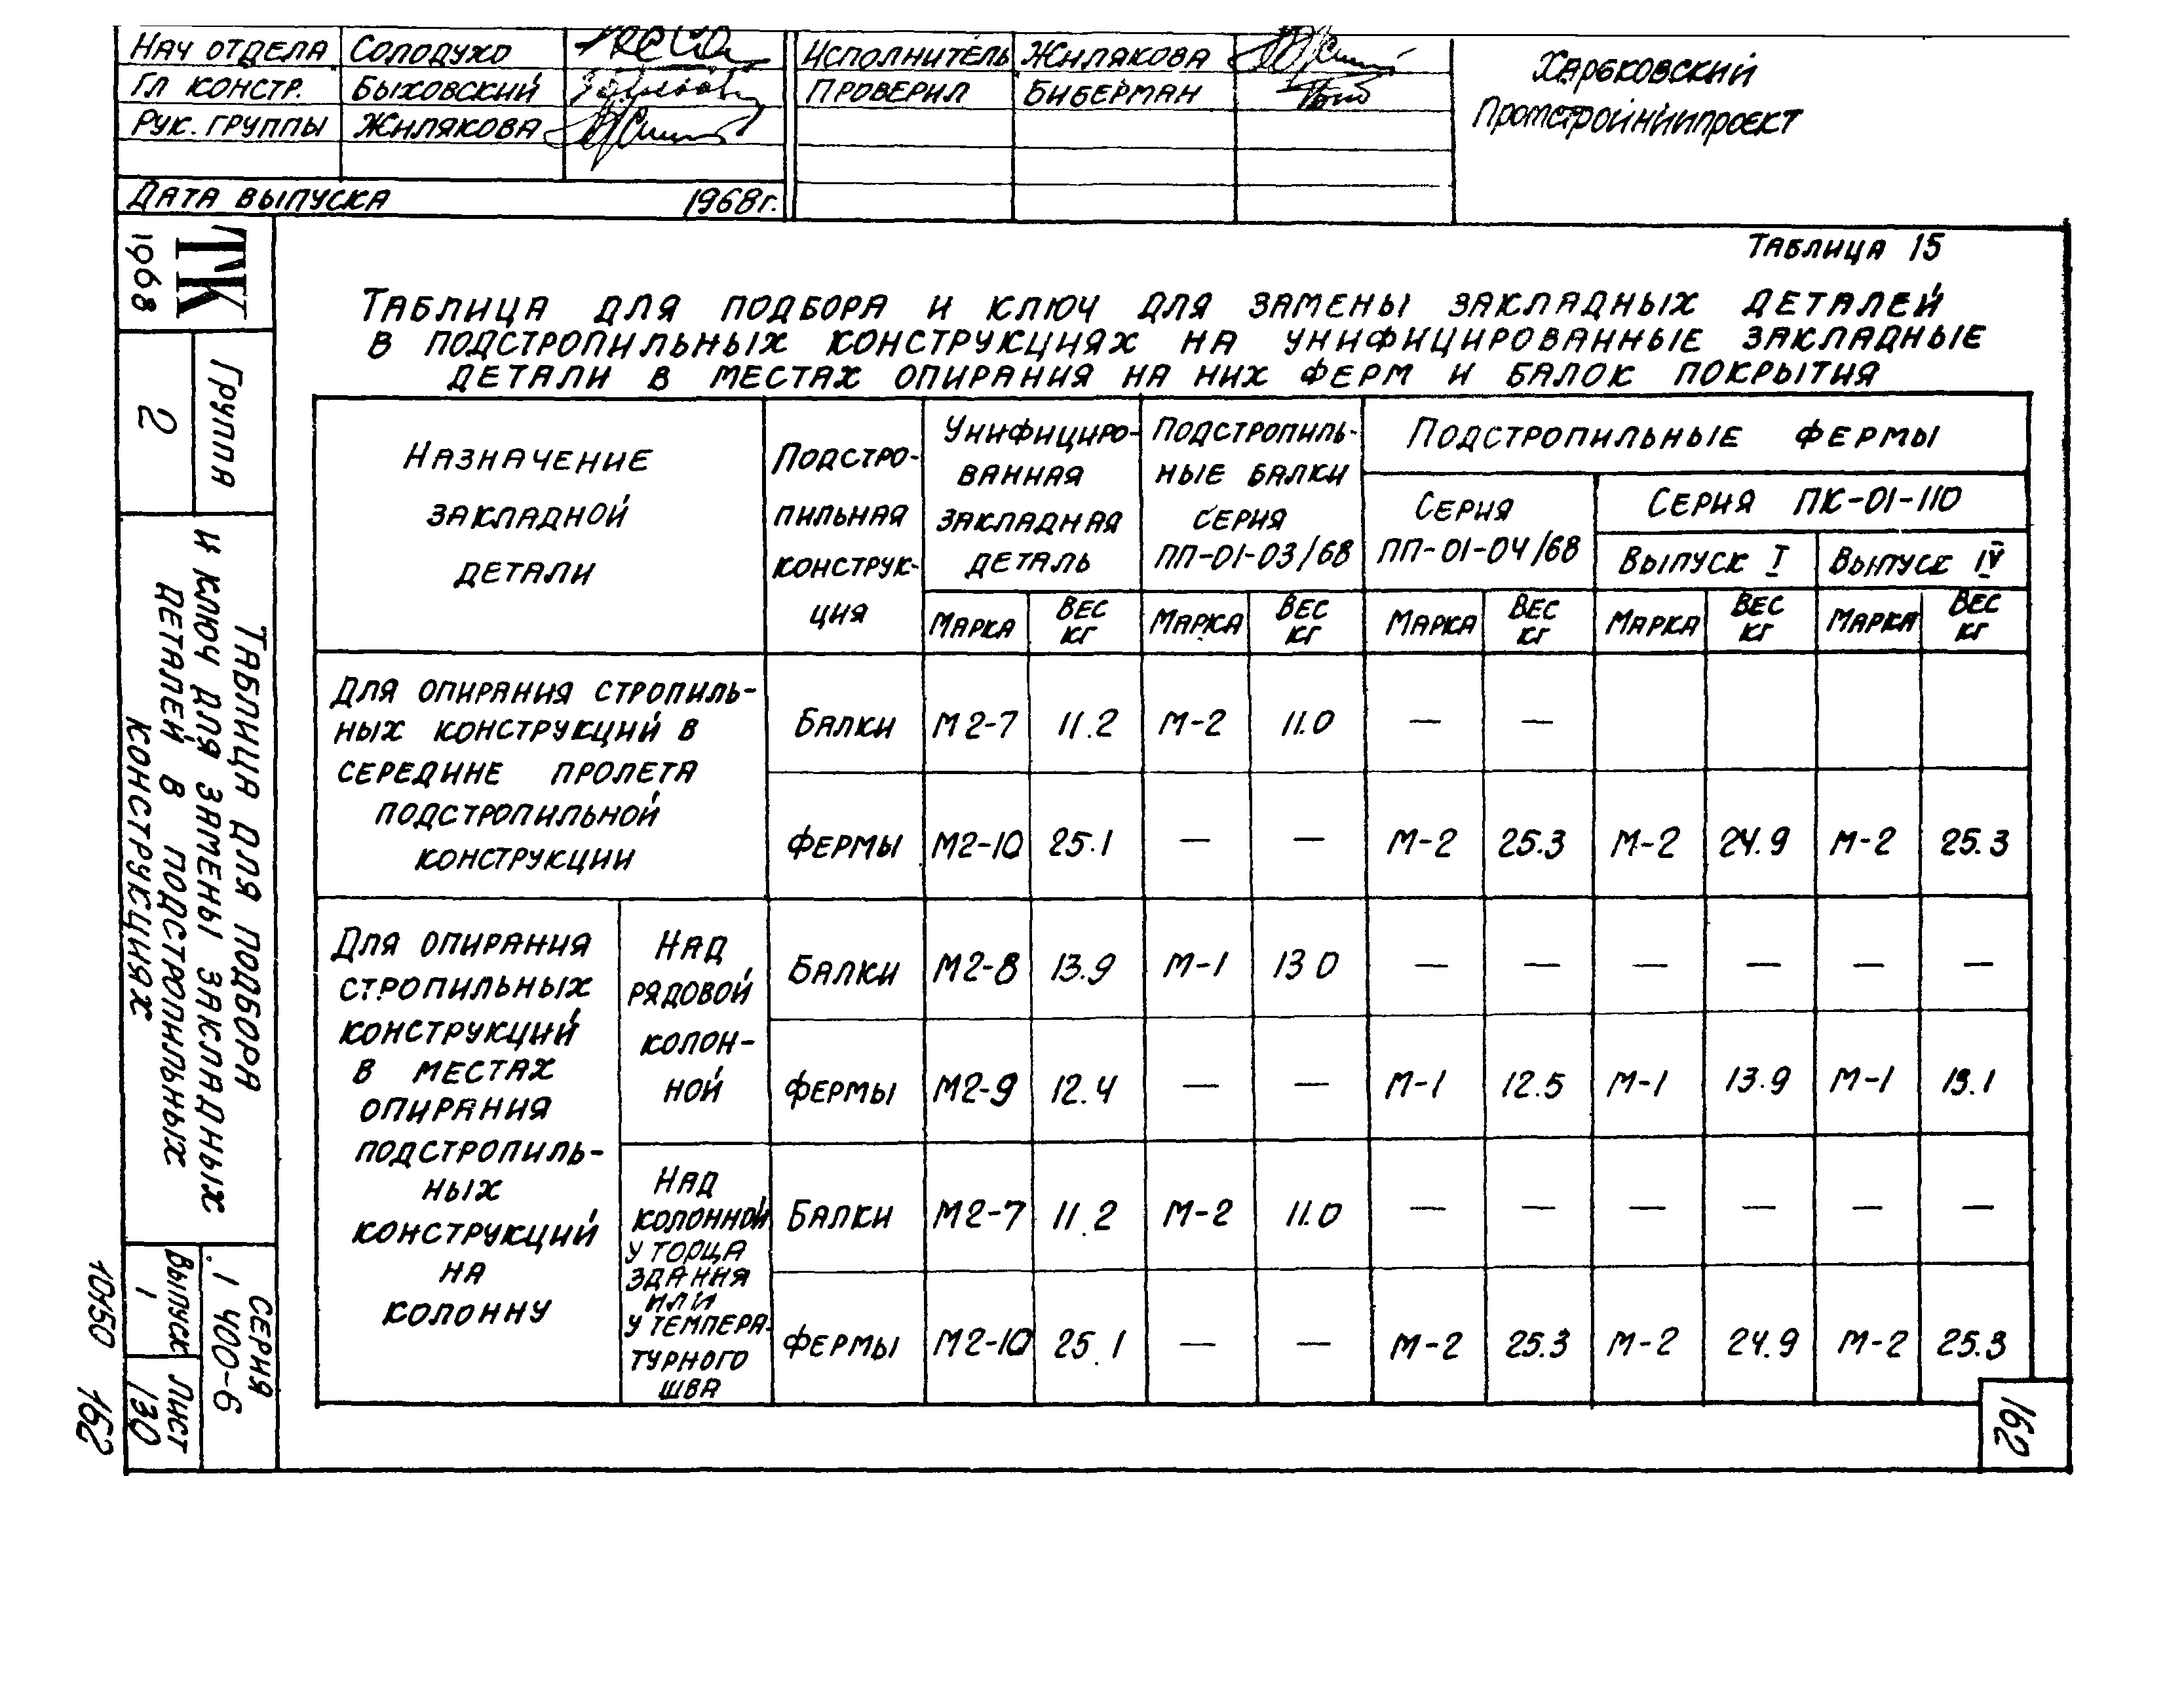 Нач отдела Солодухо
Гл констр. Быховский
Рук. группы Жилякова
Дата выпуска 1968г.
Исполнитель Жилякова
Проверил Биберман
Харьковский
Промстройниипроект
ТК
1968
Группа
2
Таблица для подбора
и ключ для замены закладных
деталей в подстропильных
конструкциях
Серия
1 400-6
Выпуск
1
Лист
130
10450 162
Таблица 15
Таблица для подбора и ключ для замены закладных деталей
в подстропильных конструкциях на унифицированные закладные
детали в местах опирания на них ферм и балок покрытия
Назначение
закладной
детали
Подстро-
пильная
конструк-
ция
Унифициро-
ванная
закладная
деталь
Подстропиль-
ные балки
серия
ПП-01-03/68
Подстропильные фермы
Серия
ПП-01-04/68
Серия ПК-01-110
Выпуск I Выпуск IV
Марка Вес кг Марка Вес кг Марка Вес кг Марка Вес кг Марка Вес кг
Для опирания стропиль-
ных конструкций в
середине пролета
подстропильной
конструкции
Балки М2-7 11.2 М-2 11.0 — —
Фермы М2-10 25.1 — — М-2 25.3 М-2 24.9 М-2 25.3
Для опирания
стропильных
конструкций
в местах
опирания
подстропиль-
ных
конструкций
на
колонну
Над
рядовой
колон-
ной
Балки М2-8 13.9 М-1 13 0 — — — — — —
Фермы М2-9 12.4 — — М-1 12.5 М-1 13.9 М-1 13.1
Над
колонной
у торца
здания
или
у темпера-
турного
шва
Балки М2-7 11.2 М-2 11.0 — — — — — —
Фермы М2-10 25.1 — — М-2 25.3 М-2 24.9 М-2 25.3
162